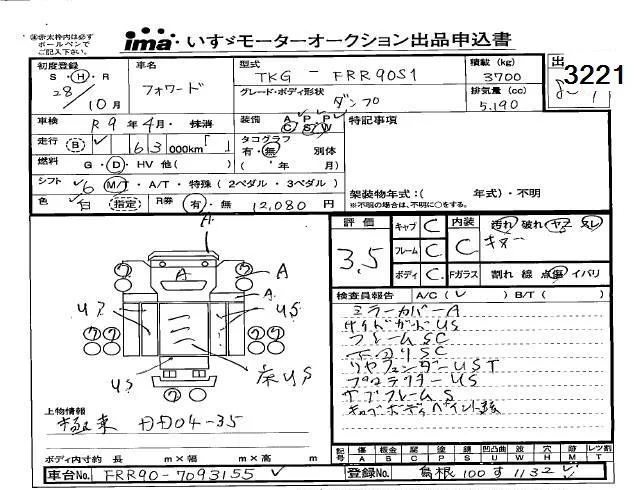 ※赤太枠内は必ず
ボールペンで
ご記入下さい。
ima・いすゞモーターオークション出品申込書
初度登録 車名 型式 積載 (kg) 出
S・H・R フォワード TKG - FRR90S1 3700 3221
28/10月 グレード・ボディ形状 ダンプ 排気量 (cc) 5,190
車検 R9年4月・抹消 装備 A P P C S W 特記事項
走行 B 63 000km タコグラフ 有・無 別体
燃料 G・D・HV 他( ) ( ' 年 月)
シフト 6 M/T・A/T・特殊 (2ペダル・3ペダル) 架装物年式:( 年式)・不明
色 白 指定 R券 有・無 12,080 円 ※不明の場合は、不明に○をする。
評価 キャブ C 内装 汚れ 破れ ヤケ スレ
3.5 フレーム C C キズ
ボディ C Fガラス 割れ 線 点傷 イバリ
検査員報告 A/C( ✓ ) B/T( )
ミラーカバーA
サイドガードUS
フレームSC
下回りSC
リヤフェンダーUST
プロテクターUS
サブフレームS
キャブボディペイント跡
A
A
A
A
US
US
US
床US
上物情報 極東 DD04-35
ボディ内寸約 長 m×幅 m×高 m
記号 傷 A 板金 B 腐 C 塗 P 錆 S 凹凸曲 U 波 W 穴 H 跡 M レツ割 T
車台No. FRR90-7093155 登録No. 島根100す1132